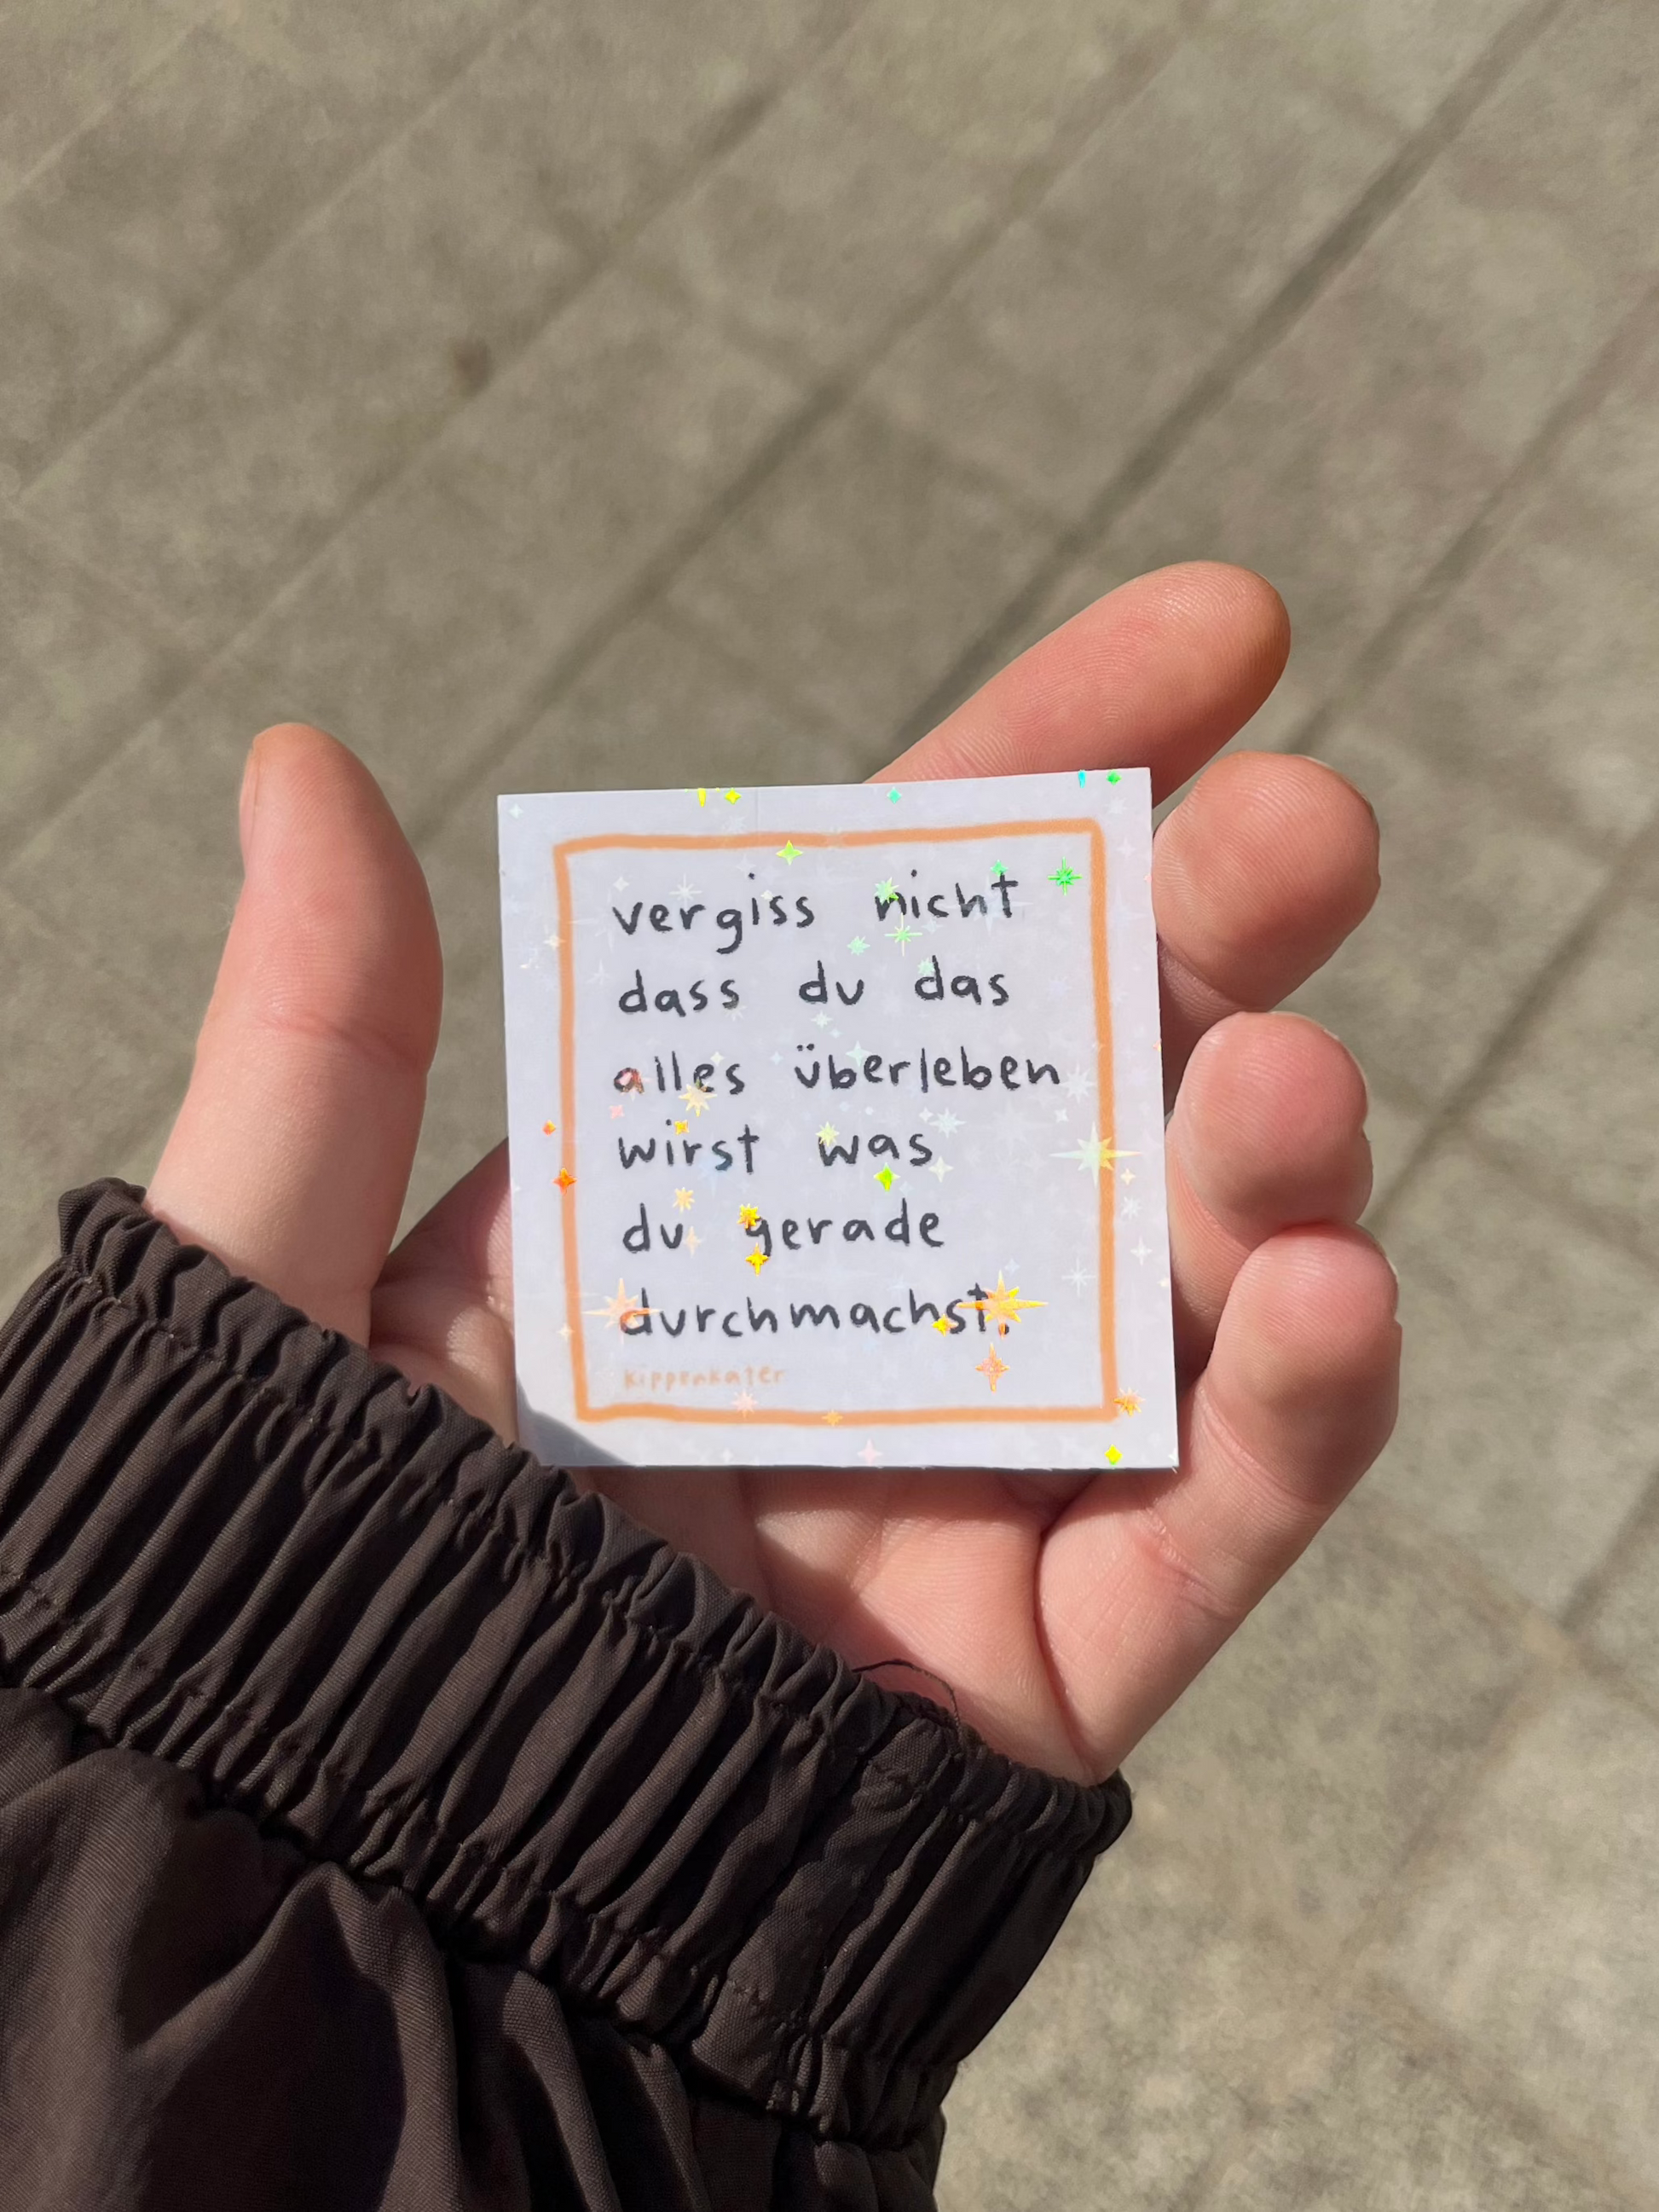 vergiss nicht
dass du das
alles überleben
wirst was
du gerade
durchmachst.
kippenkater